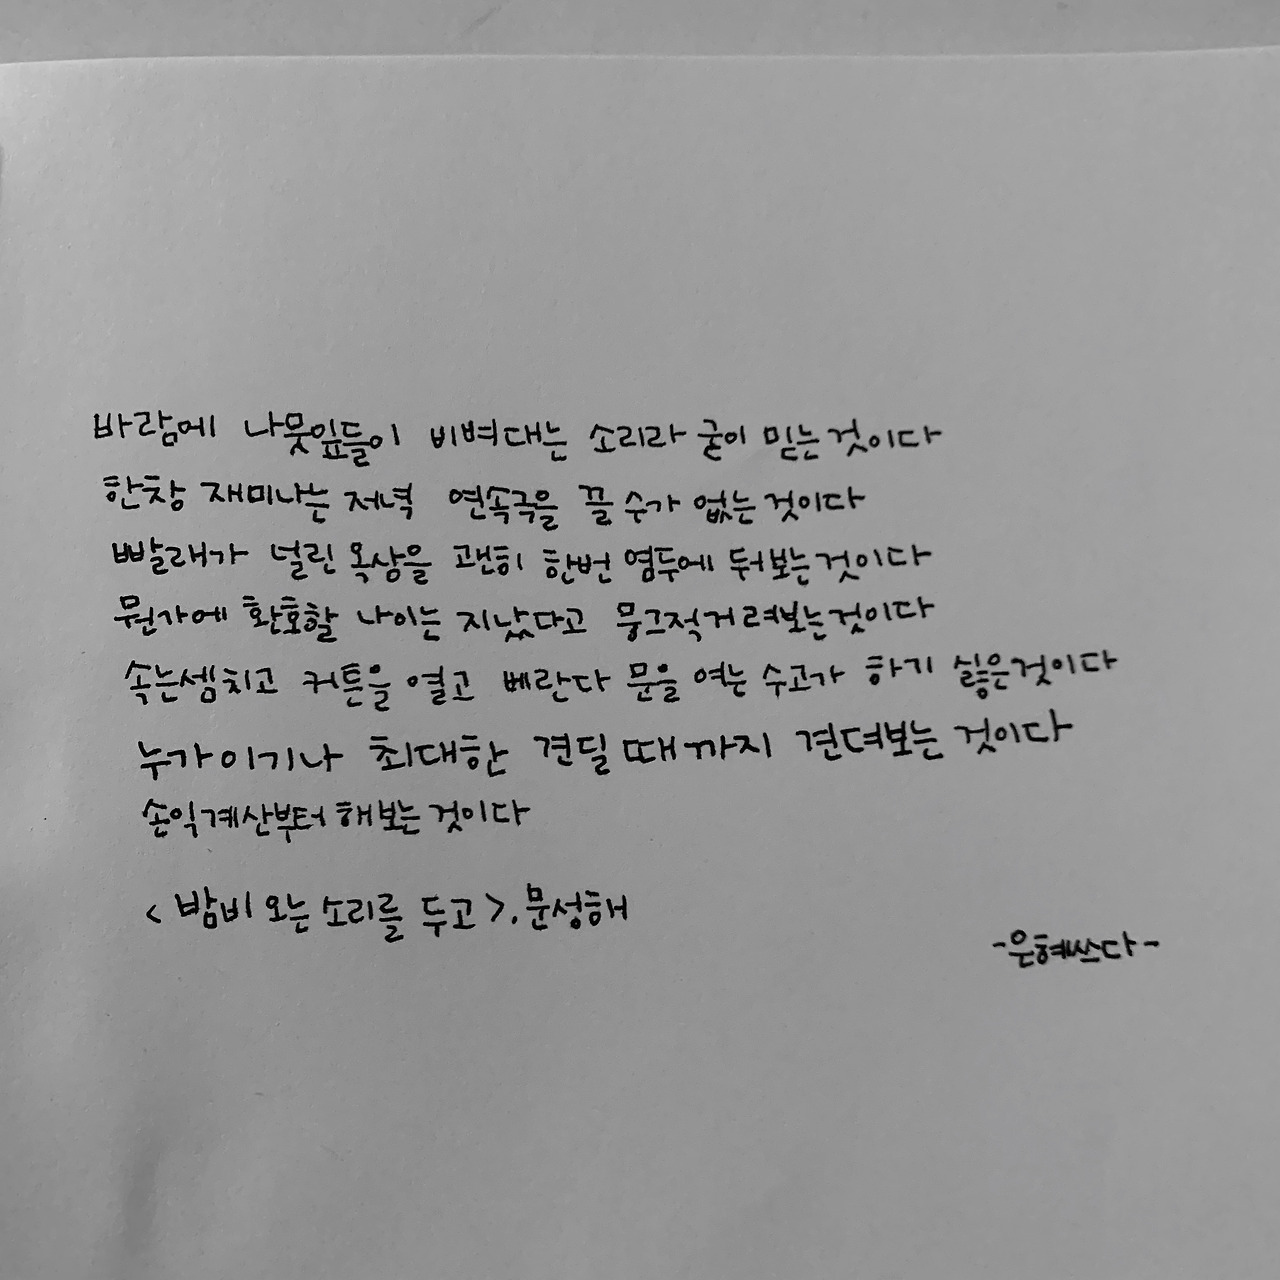 바람에 나뭇잎들이 비벼대는 소리라 굳이 믿는 것이다
한창 재미나는 저녁 연속극을 끌 수가 없는 것이다
빨래가 널린 옥상을 괜히 한번 염두에 둬보는 것이다
뭔가에 환호할 나이는 지났다고 뭉그적거려보는 것이다
속는셈치고 커튼을 열고 베란다 문을 여는 수고가 하기 싫은 것이다
누가 이기나 최대한 견딜 때까지 견뎌보는 것이다
손익계산부터 해보는 것이다
< 밤비 오는 소리를 두고 >. 문성해
-은혜쓰다-